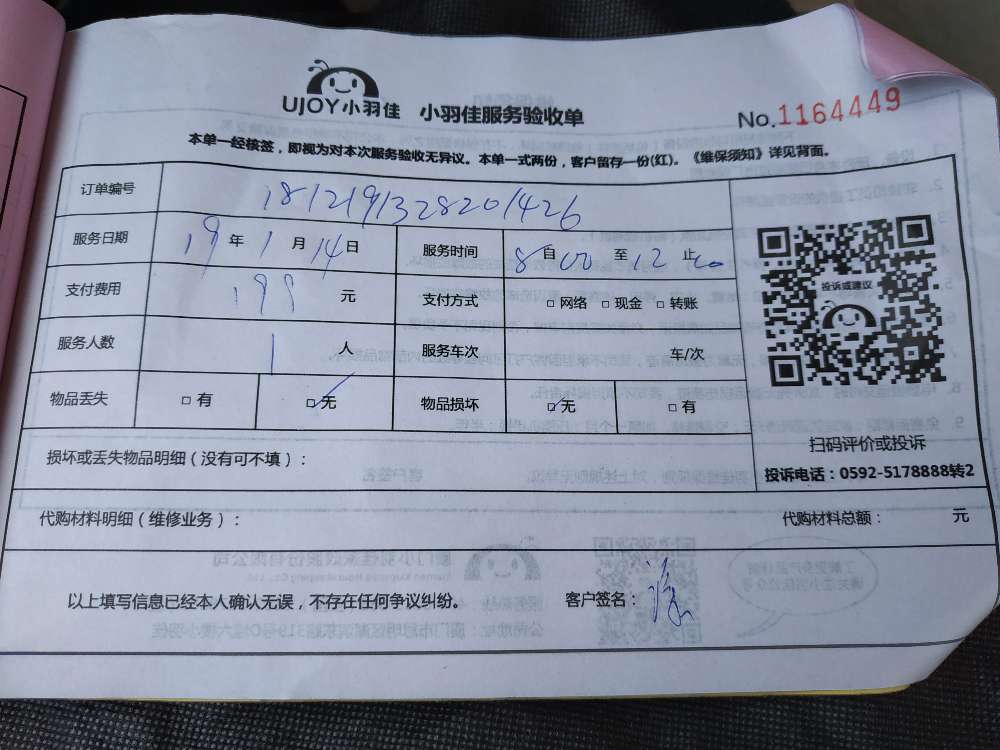 UJOY小羽佳 小羽佳服务验收单 No.1164449
本单一经核签，即视为对本次服务验收无异议。本单一式两份，客户留存一份(红)。《维保须知》详见背面。
订单编号 1812191328201426
服务日期 19年1月14日 服务时间 8自00至12止00
支付费用 199元 支付方式 □网络 □现金 □转账
投诉或建议
服务人数 1人 服务车次 车/次
物品丢失 □有 ☑无 物品损坏 ☑无 □有
扫码评价或投诉
损坏或丢失物品明细（没有可不填）：
投诉电话：0592-5178888转2
代购材料明细（维修业务）： 代购材料总额： 元
以上填写信息已经本人确认无误，不存在任何争议纠纷。 客户签名：